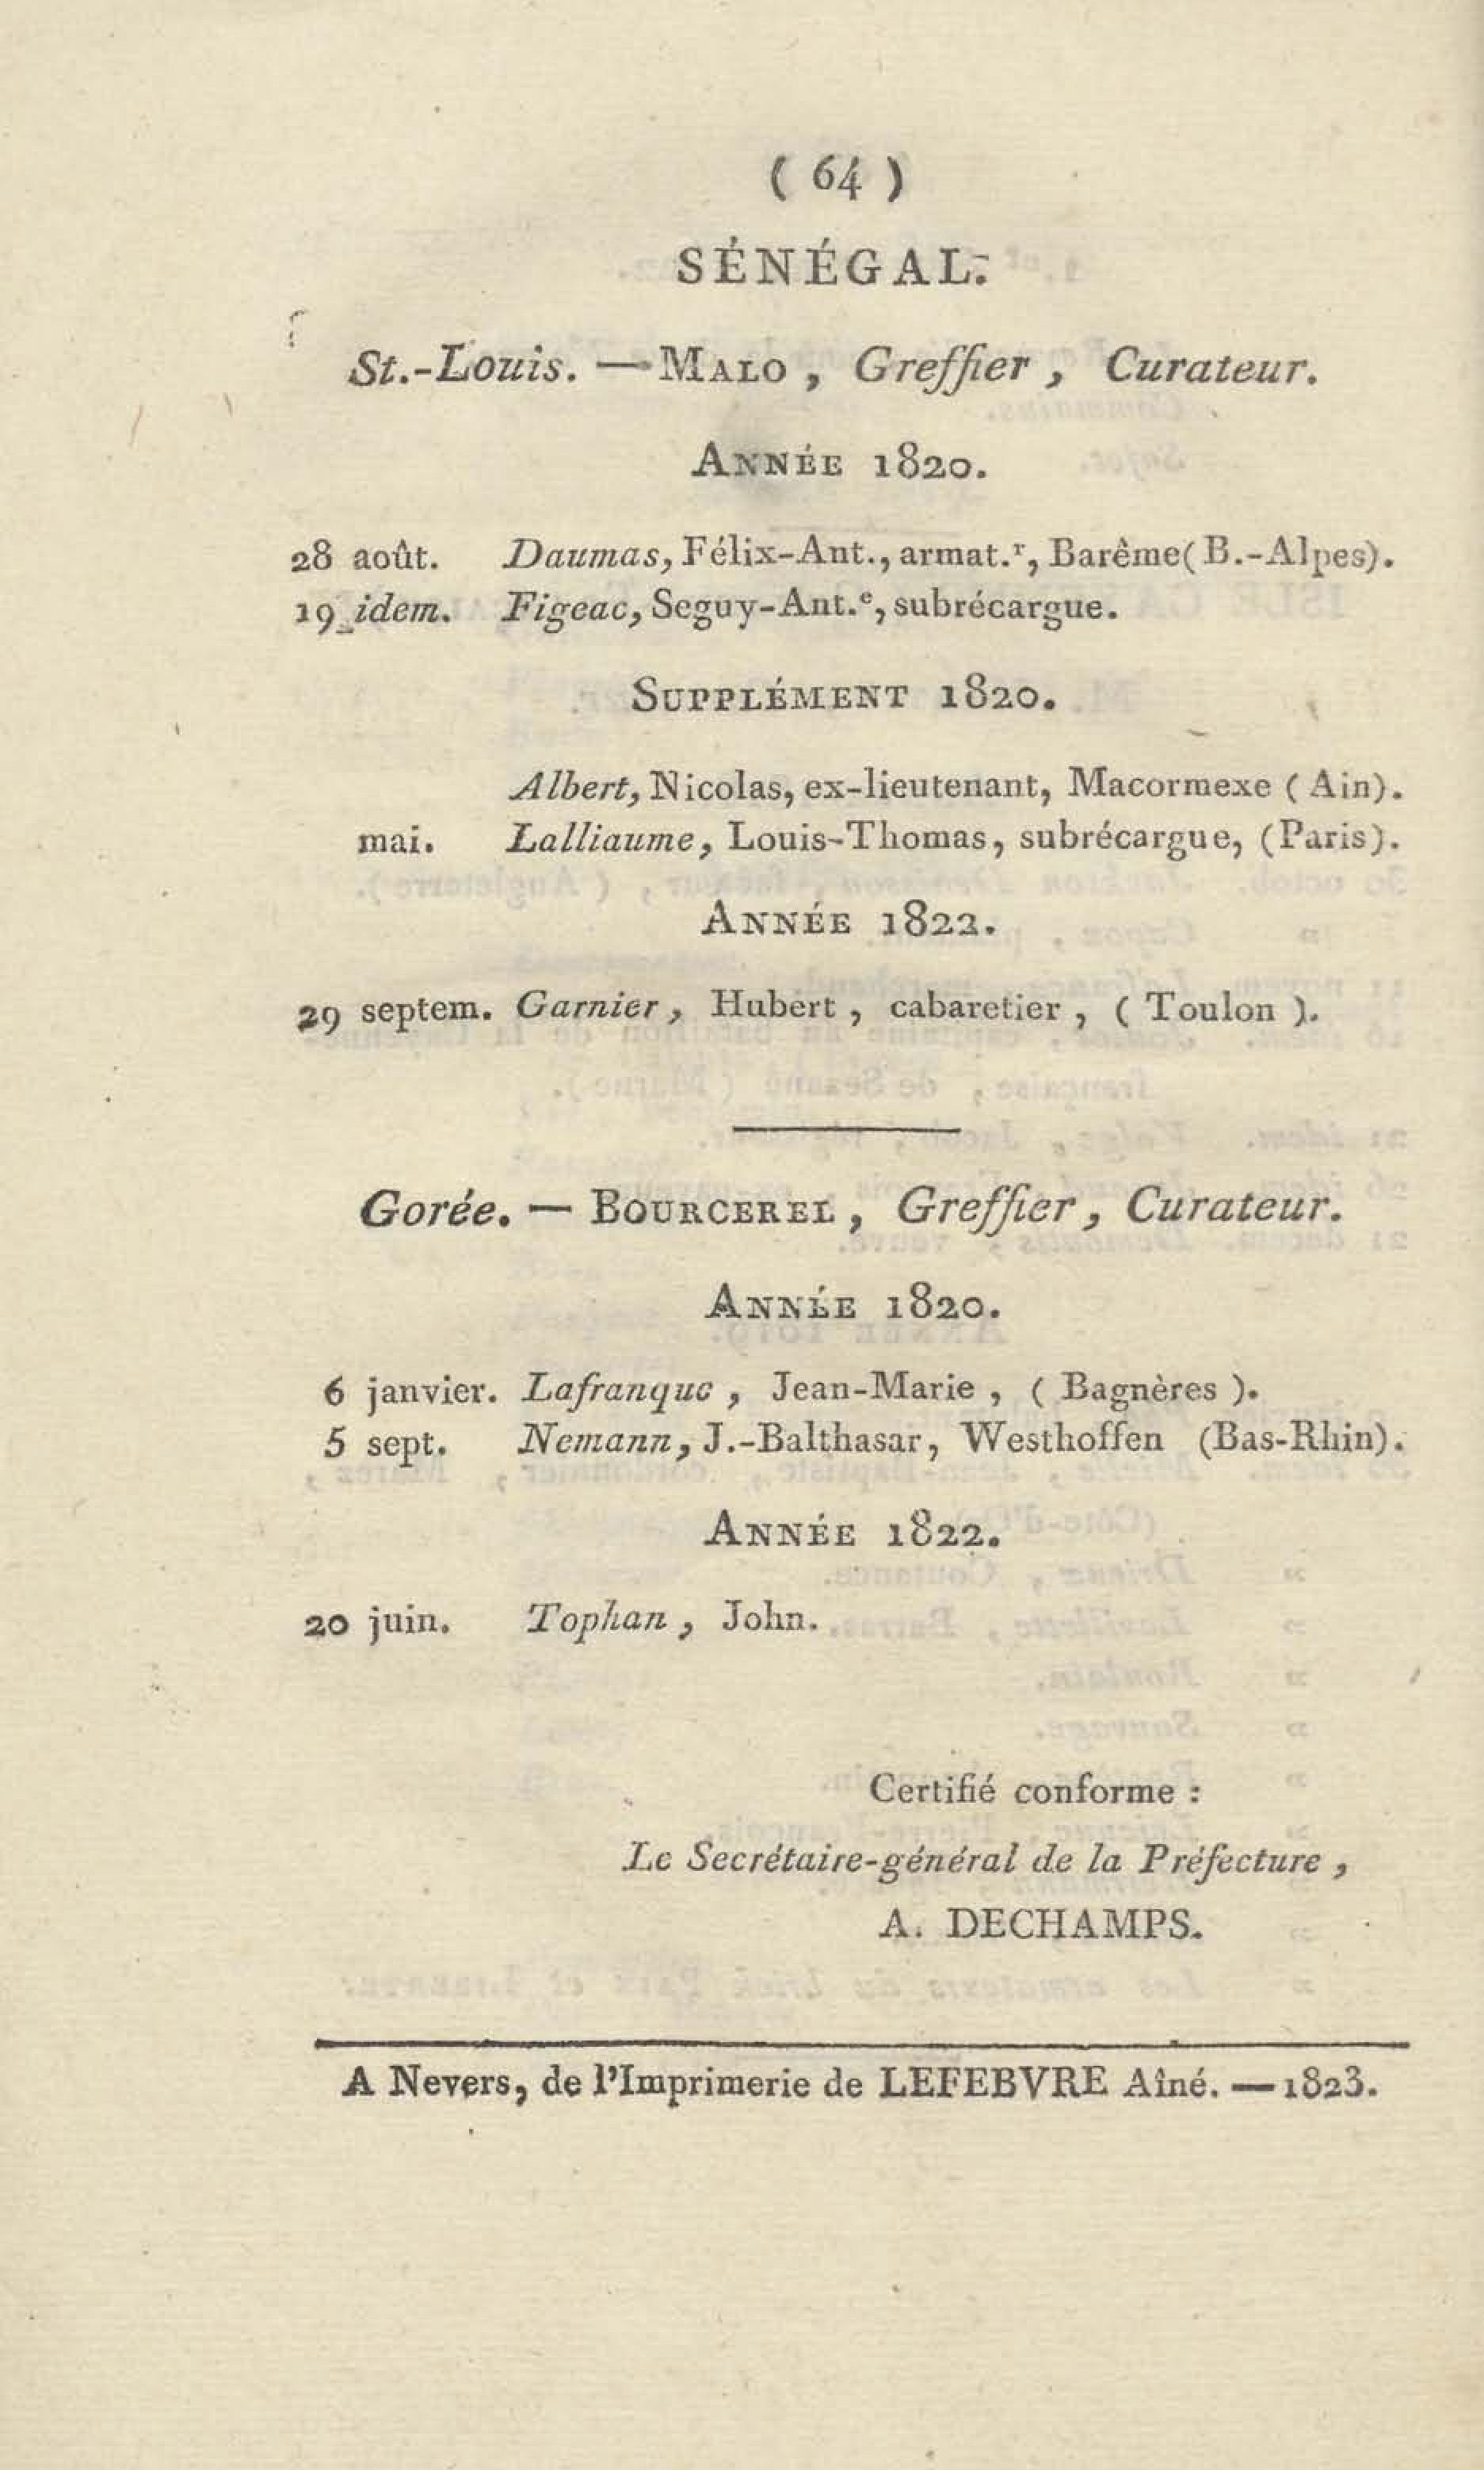 ( 64 )
SÉNÉGAL.
St.-Louis. — MALO, Greffier, Curateur.
ANNÉE 1820.
28 août. Daumas, Félix-Ant., armat.r, Barême (B.-Alpes).
19 idem. Figeac, Seguy-Ant.e, subrécargue.
SUPPLÉMENT 1820.
Albert, Nicolas, ex-lieutenant, Macormexe (Ain).
mai. Lalliaume, Louis-Thomas, subrécargue, (Paris).
ANNÉE 1822.
29 septem. Garnier, Hubert, cabaretier, (Toulon).
Gorée. — BOURCEREL, Greffier, Curateur.
ANNÉE 1820.
6 janvier. Lafranque, Jean-Marie, (Bagnères).
5 sept. Nemann, J.-Balthasar, Westhoffen (Bas-Rhin).
ANNÉE 1822.
20 juin. Tophan, John.
Certifié conforme :
Le Secrétaire-général de la Préfecture,
A. DECHAMPS.
A Nevers, de l'Imprimerie de LEFEBVRE Aîné. — 1823.